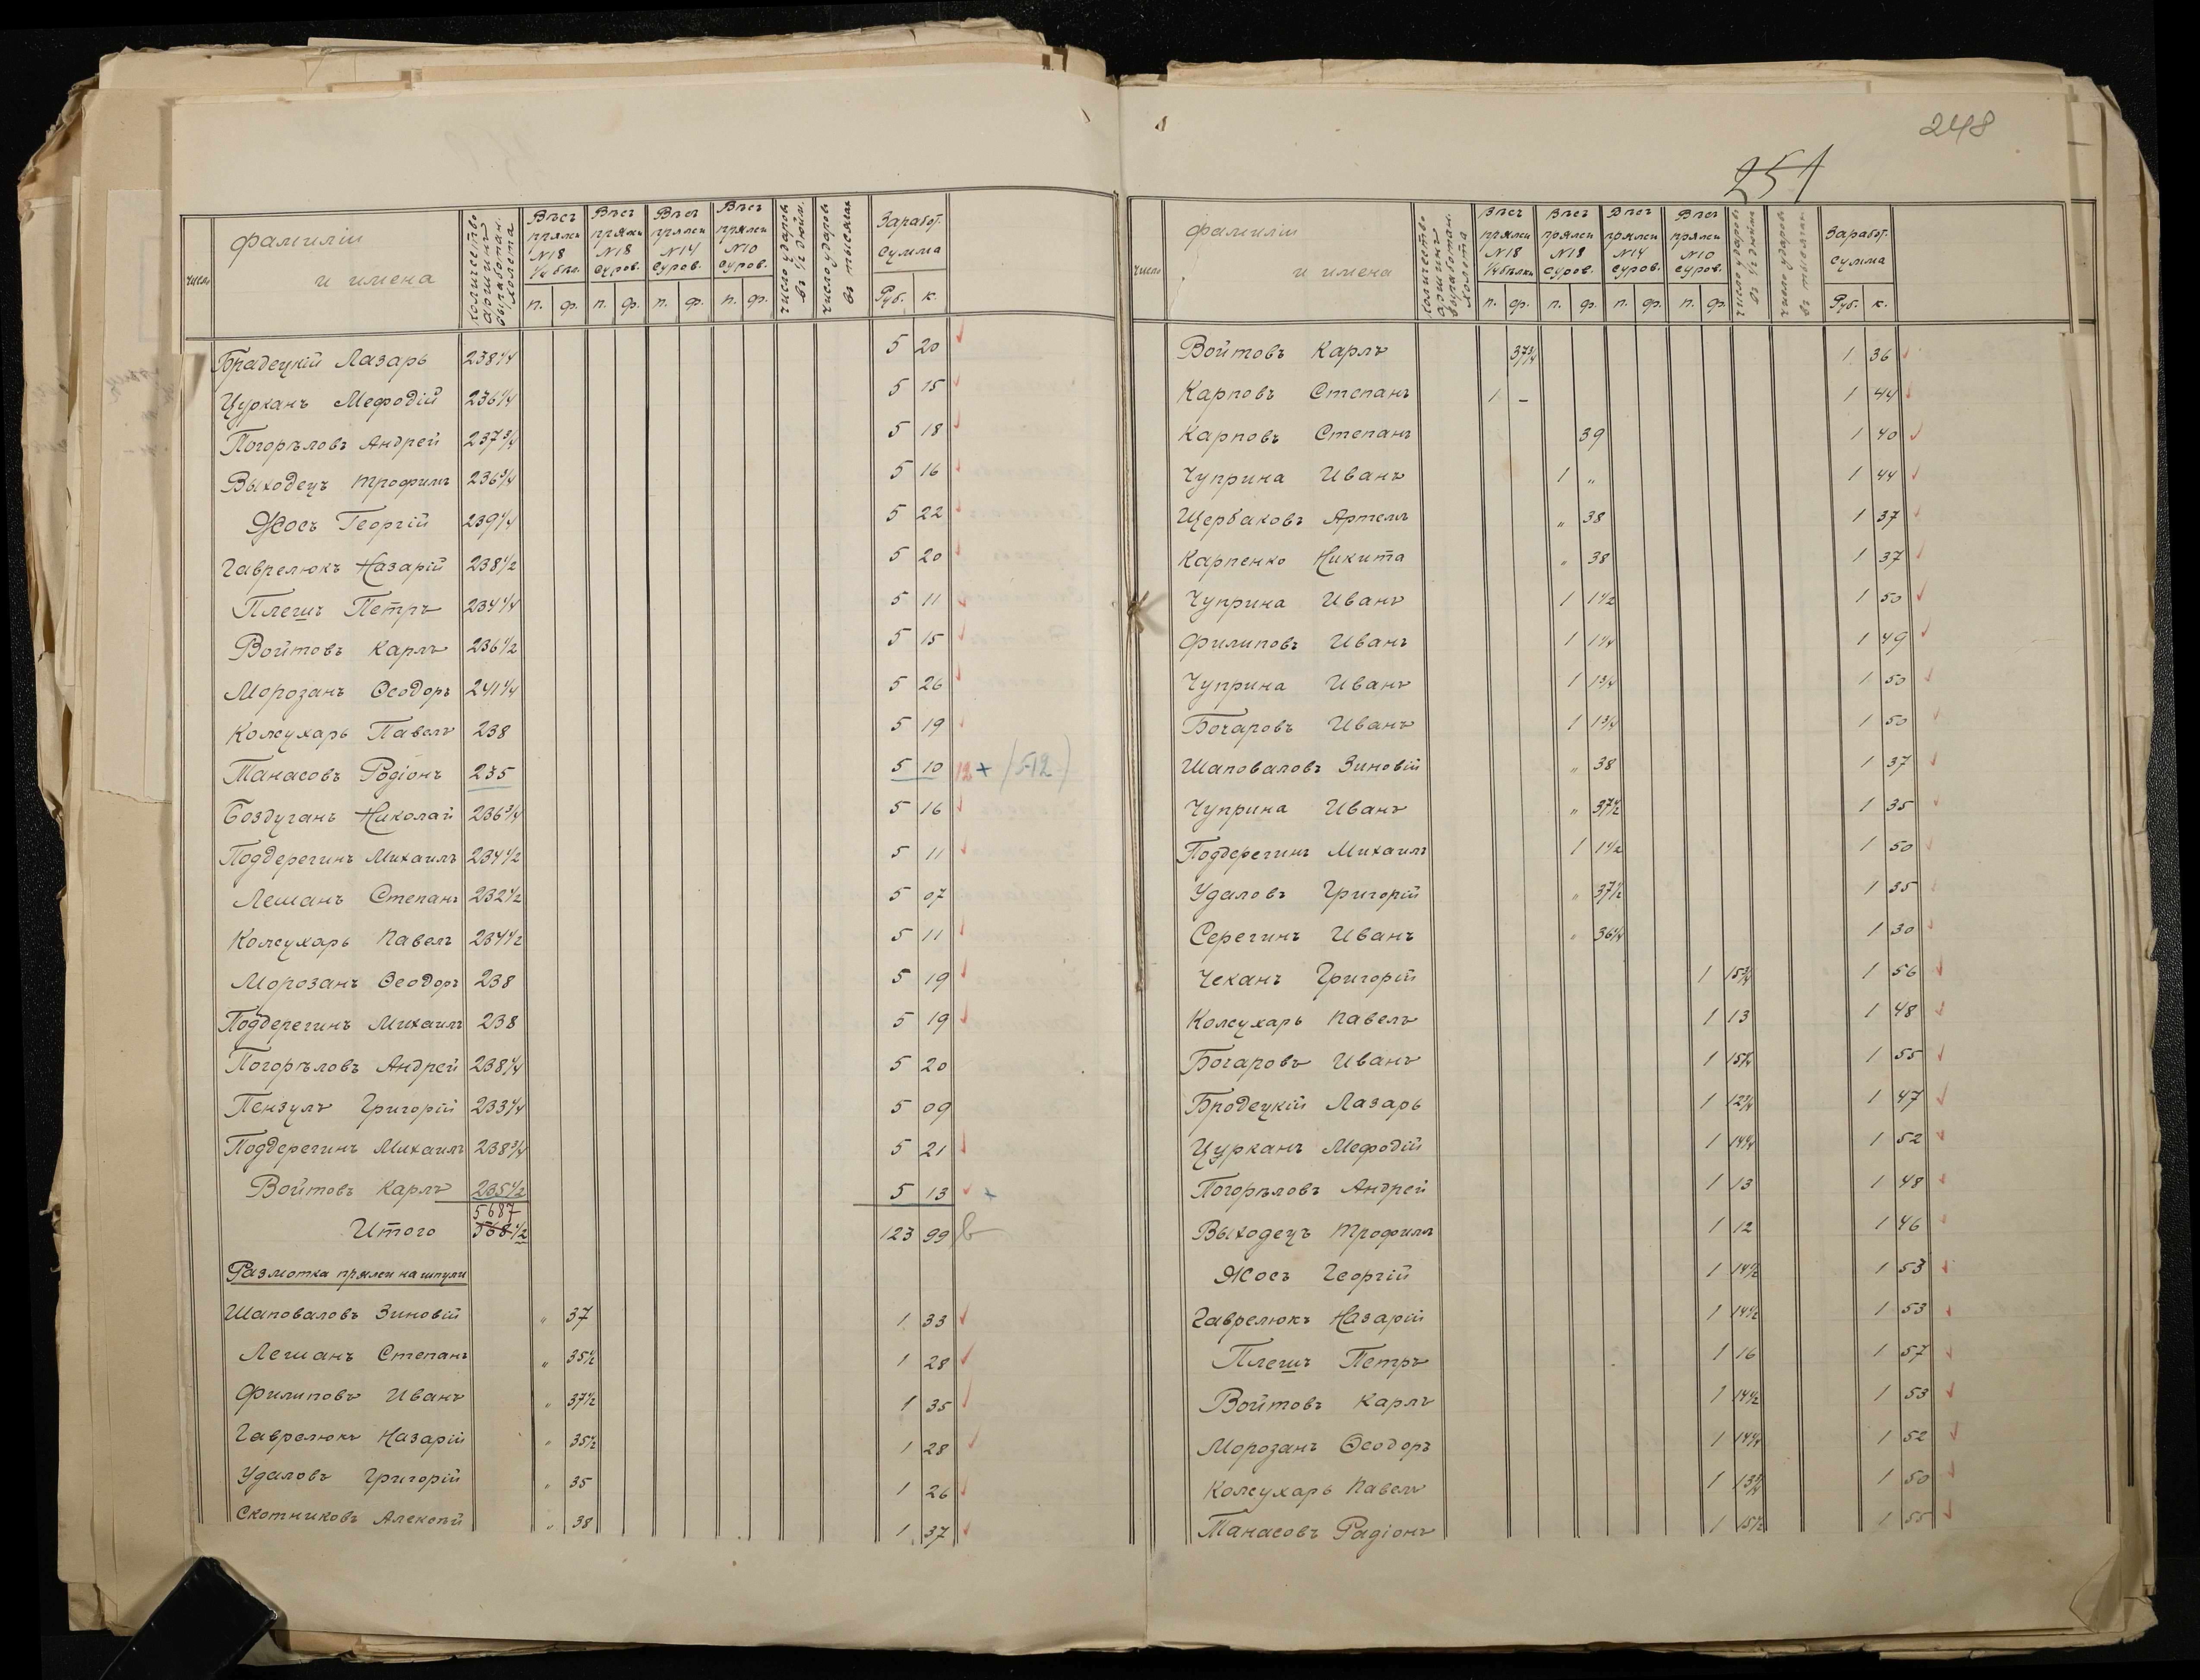 248
251
число
фамиліи и имена
количество аршинъ выработан. холста
Вѣсъ пряжи N18 1/4 бѣл.
Вѣсъ пряжи N18 суров.
Вѣсъ пряжи N14 суров.
Вѣсъ пряжи N10 суров.
число ударовъ въ 1/2 дюйм.
число ударовъ въ тысячахъ
Заработ. сумма
п. ф. п. ф. п. ф. п. ф. Руб. к.
Брадецкій Лазарь 238 1/4 5 20
Цурканъ Мефодій 236 1/4 5 15
Погорѣловъ Андрей 237 3/4 5 18
Выходецъ Трофимъ 236 3/4 5 16
Жосъ Георгій 239 1/4 5 22
Гаврелюкъ Назарій 238 1/2 5 20
Плешъ Петръ 234 1/4 5 11
Войтовъ Карлъ 236 1/2 5 15
Морозанъ Ѳеодоръ 241 1/4 5 26
Кожухарь Павелъ 238 5 19
Танасовъ Родіонъ 235 5 10 12 + (5-12)
Боздуганъ Николай 236 3/4 5 16
Поддерегинъ Михаилъ 234 1/2 5 11
Лешанъ Степанъ 232 1/2 5 07
Кожухарь Павелъ 234 1/2 5 11
Морозанъ Ѳеодоръ 238 5 19
Поддерегинъ Михаилъ 238 5 19
Погорѣловъ Андрей 238 1/4 5 20
Пензулъ Григорій 233 1/4 5 09
Поддерегинъ Михаилъ 238 3/4 5 21
Войтовъ Карлъ 235 1/2 5 13 +
5687
Итого 568 1/2 123 99
Размотка пряжи на шпули
Шаповаловъ Зиновій „ 37 1 33
Лешанъ Степанъ „ 35 1/2 1 28
Филиповъ Иванъ „ 37 1/2 1 35
Гаврелюкъ Назарій „ 35 1/2 1 28
Удаловъ Григорій „ 35 1 26
Скотниковъ Алексѣй „ 38 1 37
число
фамиліи и имена
количество аршинъ выработан. холста
Вѣсъ пряжи N18 1/4 бѣлки
Вѣсъ пряжи N18 суров.
Вѣсъ пряжи N14 суров.
Вѣсъ пряжи N10 суров.
число ударовъ въ 1/2 дюйма
число ударовъ въ тысячахъ
Заработ. сумма
п. ф. п. ф. п. ф. п. ф. Руб. к.
Войтовъ Карлъ 37 3/4 1 36
Карповъ Степанъ 1 – 1 44
Карповъ Степанъ 39 1 40
Чуприна Иванъ 1 „ 1 44
Щербаковъ Артемъ „ 38 1 37
Карпенко Никита „ 38 1 37
Чуприна Иванъ 1 1 1/2 1 50
Филиповъ Иванъ 1 1 1/4 1 49
Чуприна Иванъ 1 1 3/4 1 50
Бочаровъ Иванъ 1 1 3/4 1 50
Шаповаловъ Зиновій „ 38 1 37
Чуприна Иванъ „ 37 1/2 1 35
Поддерегинъ Михаилъ 1 1 1/2 1 50
Удаловъ Григорій „ 37 1/2 1 35
Серегинъ Иванъ „ 36 1/4 1 30
Чеканъ Григорій 1 15 3/4 1 56
Кожухарь Павелъ 1 13 1 48
Бочаровъ Иванъ 1 15 1/4 1 55
Бродецкій Лазарь 1 12 3/4 1 47
Цурканъ Мефодій 1 14 1/4 1 52
Погорѣловъ Андрей 1 13 1 48
Выходецъ Трофимъ 1 12 1 46
Жосъ Георгій 1 14 1/2 1 53
Гаврелюкъ Назарій 1 14 1/2 1 53
Плешъ Петръ 1 16 1 57
Войтовъ Карлъ 1 14 1/2 1 53
Морозанъ Ѳеодоръ 1 14 1/4 1 52
Кожухарь Павелъ 1 13 3/4 1 50
Танасовъ Радіонъ 1 15 1/2 1 55